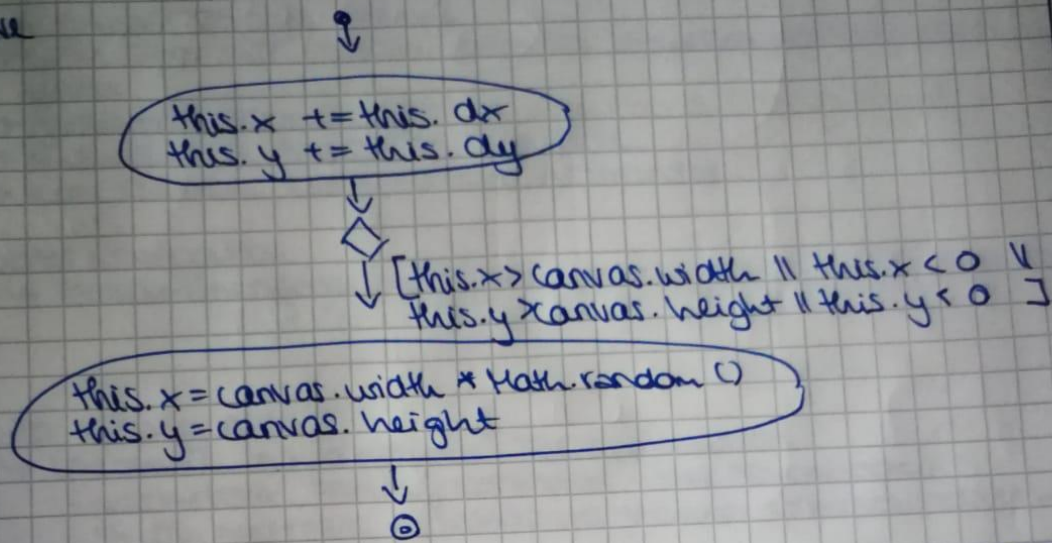 this.x += this.dx
this.y += this.dy
[this.x > canvas.width || this.x < 0 ||
this.y > canvas.height || this.y < 0 ]
this.x = canvas.width * Math.random ()
this.y = canvas.height